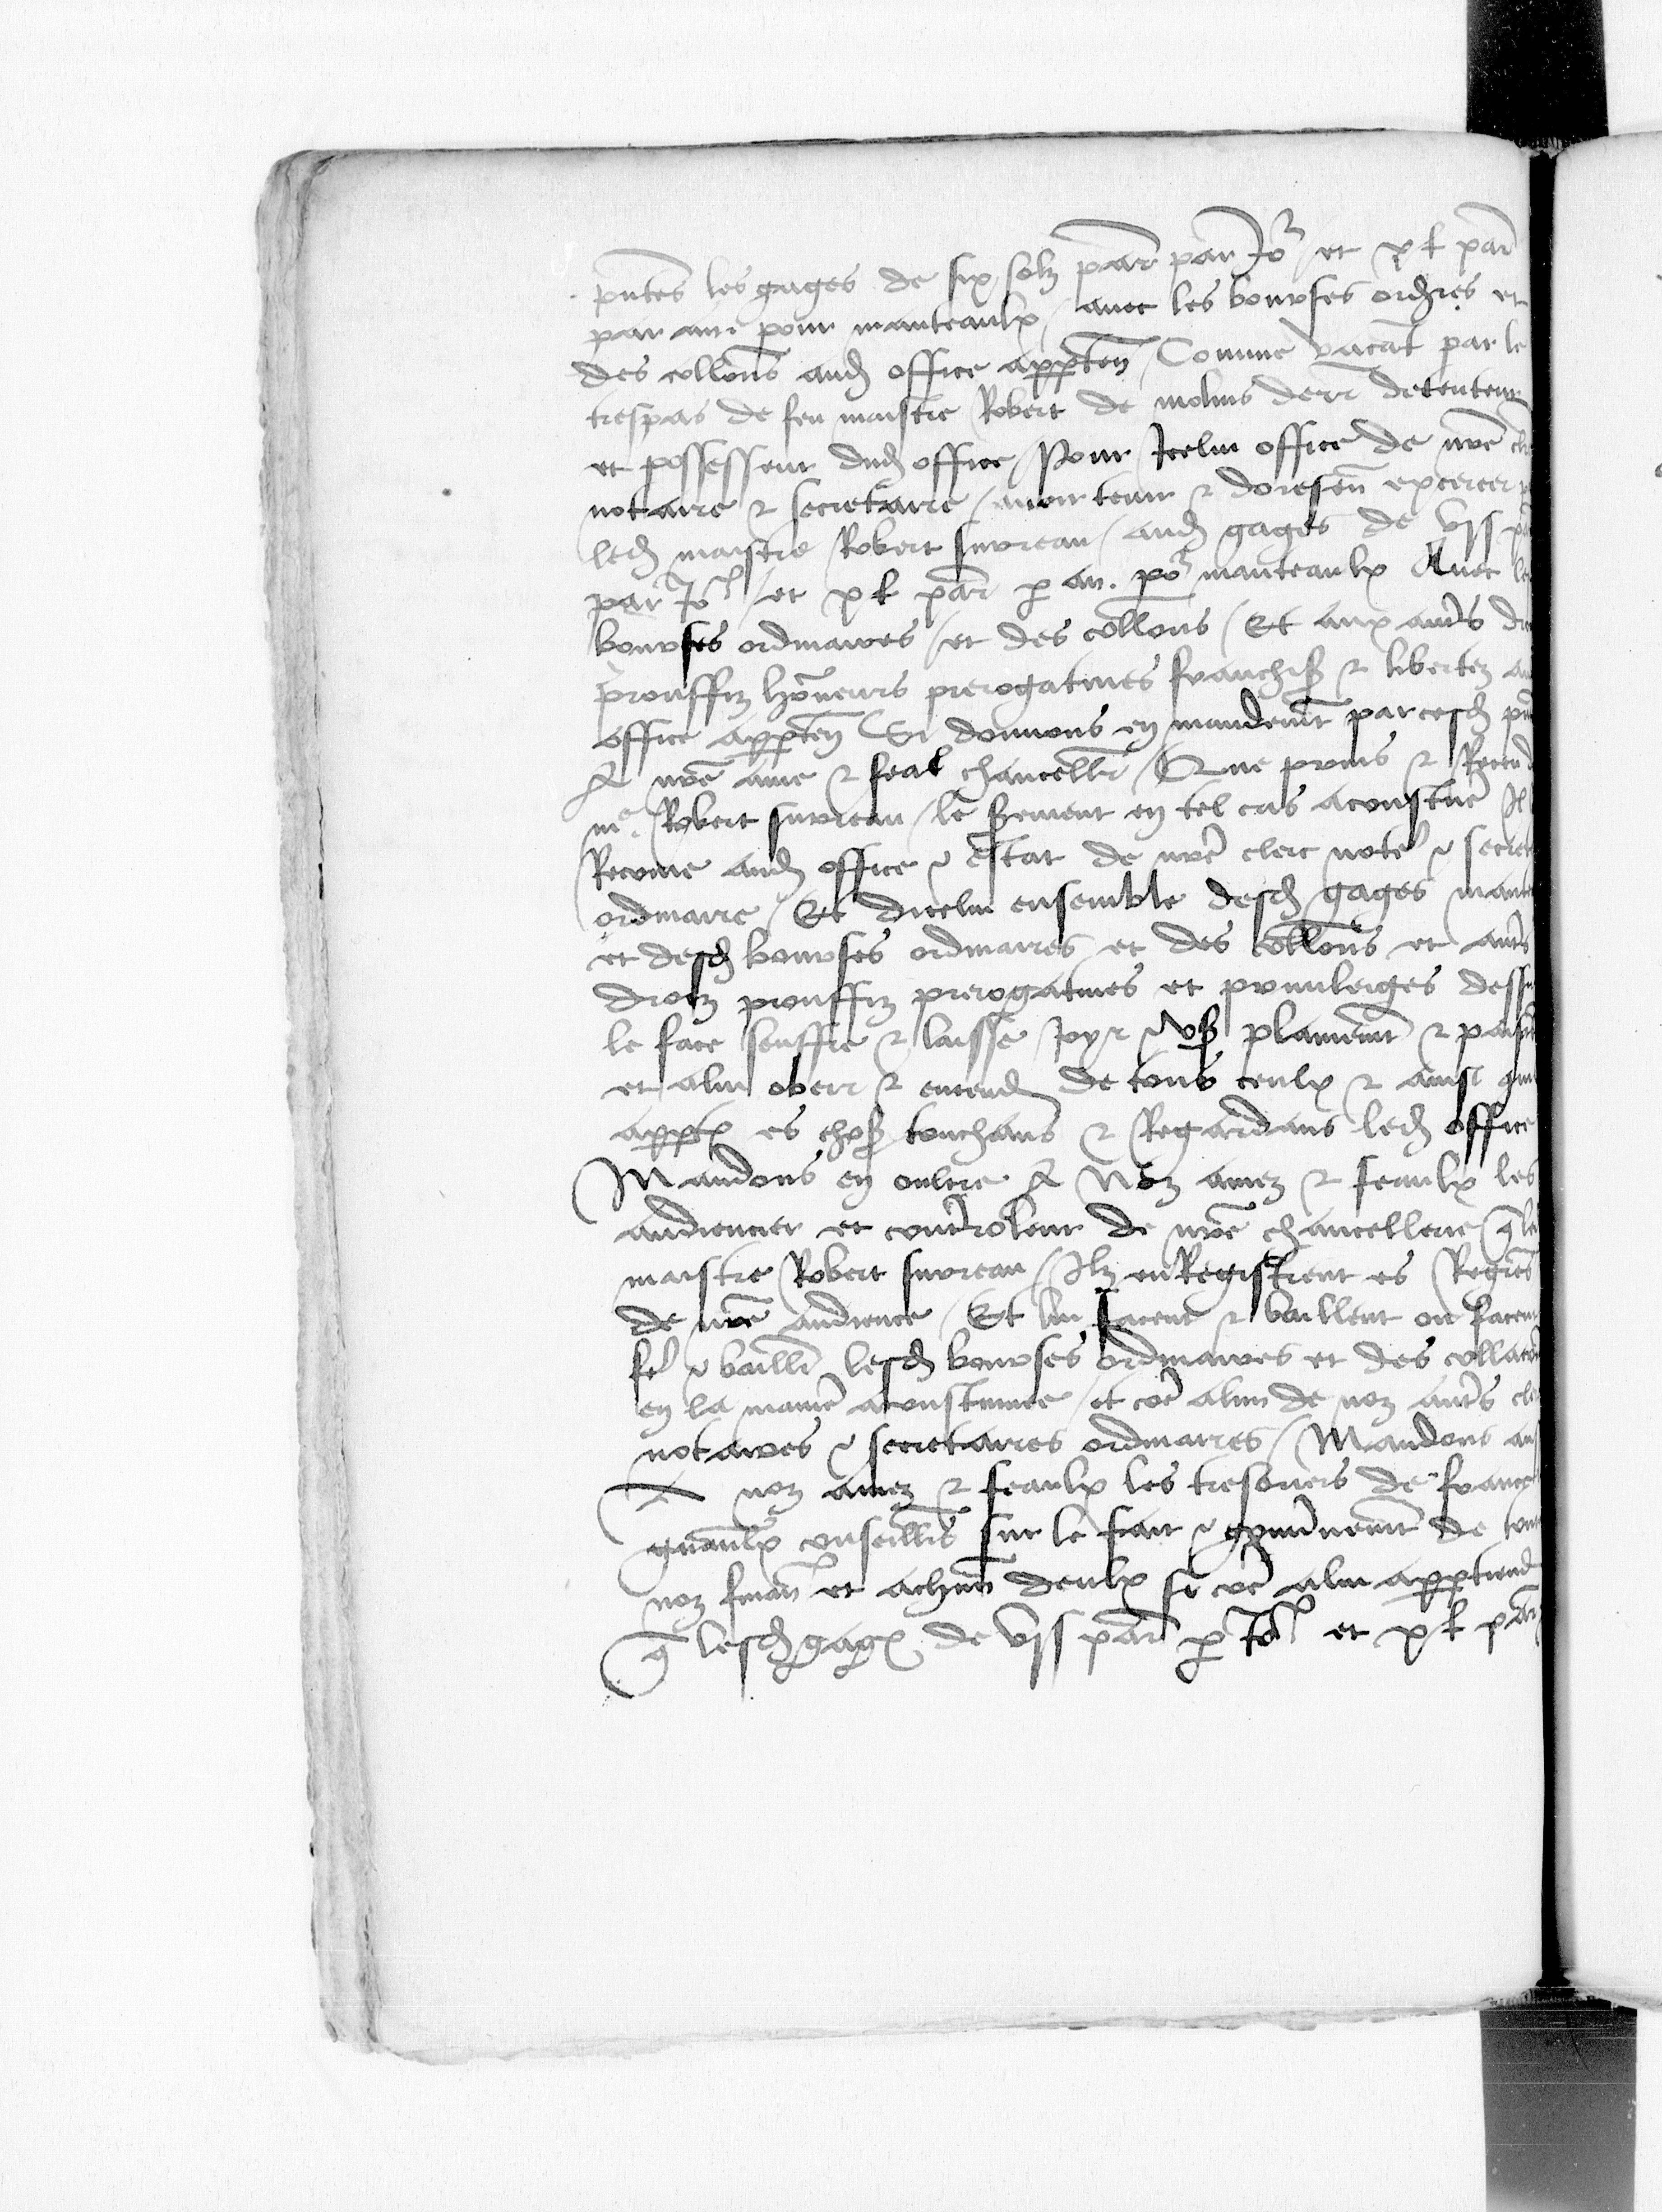 pntes les gages de six solz par par Jo et x l par
par an pour manteaulx / avec les bourses ordres et
des collons aud office apparten / Comme vacat par le
trespas de feu maistre Robert de molins derr detenteur
et possesseur dud office / Pour Icelui office de nre
notaire & secretaire / avoir tenir & doresen excercer
led maistre Robert sureau / aud gages de vi s
par Jo / et x l par p an. po manteaulx Avec
bourses ordinaires / et des collons / Et aux autrs
prouffiz honneurs prerogatives franchis & libertez
office apparten Si donnons en mandemt par cesd
A nre ame & feal chancelli / Que prins & Receu
me Robert sureau / le serement en tel cas acoustume Il
Recoive aud office & estat de nre clerc note & secret
ordinaire / Et dicelui ensemble desd gages
et desd bourses ordinaires et des collons et autrs
droiz prouffiz prerogatives et privileiges
le face seuffre & laisse joyr & us plainemt &
et a lui obeir & entend de tous ceulx & ainsi
appart es chos touchans & Regardans led office
Mandons en oultre A Noz amez & feaulx les
audiencier et controleur de nre chancellerie
maistre Robert sureau / Ilz enRegistrent es Regres
de nre audience / Et lui facent & baillent ou facent
fe & bailli lesd bourses ordinaires et des
en la manie acoustumee / et coe a lun de noz autrs
notaires & secretaires ordinaires / Mandons
A noz amez & feaulx les tresoriers de france
gnaulx conseillrs sur le fait & gouvnemt de
noz finan et achun deulx si coe a lui appartiend
q lesd gag de vi s par p Jo et x l par